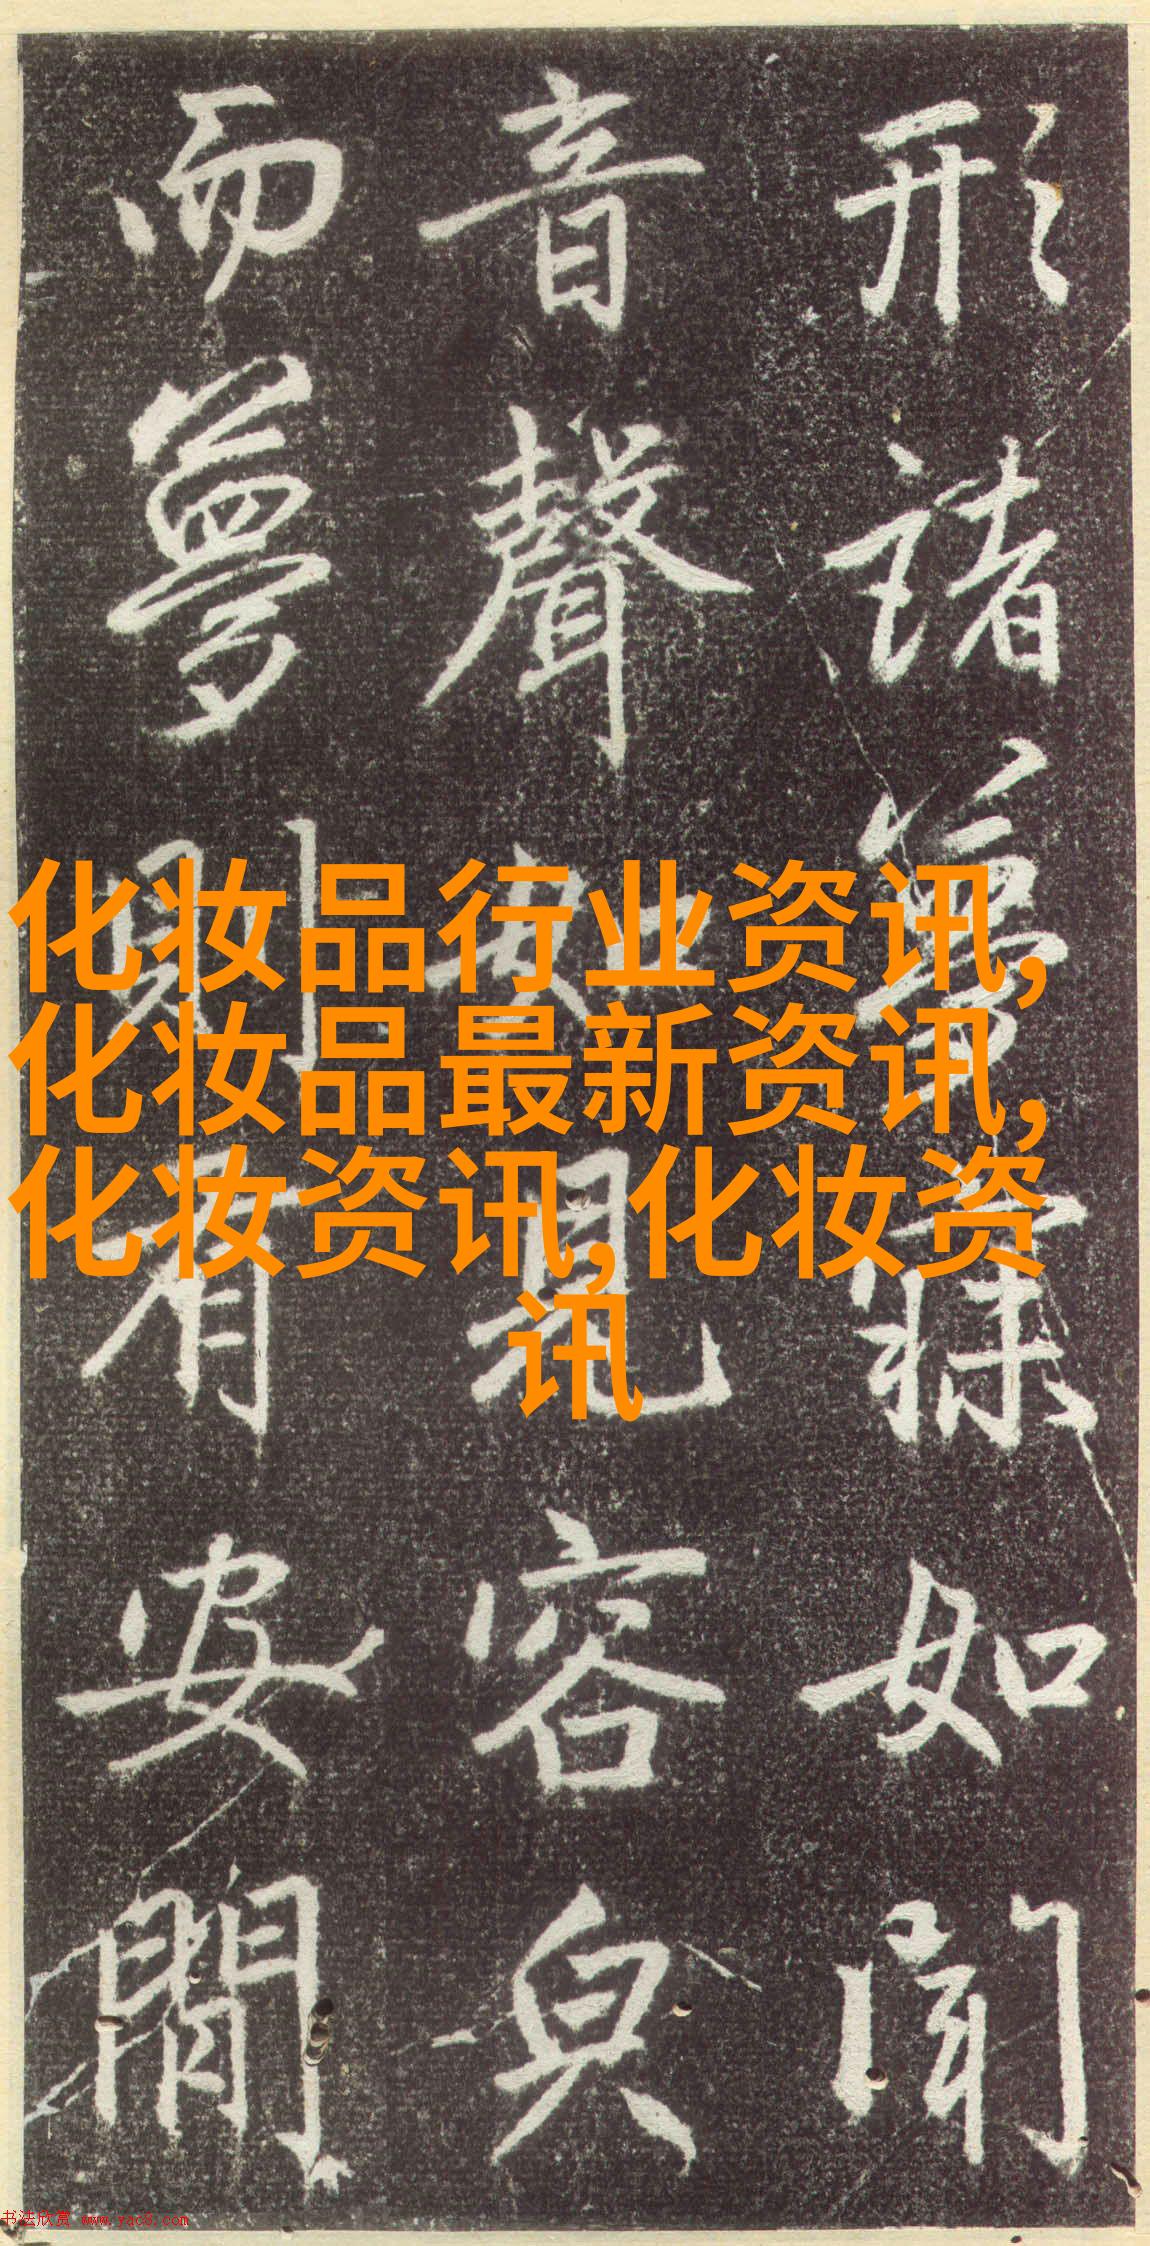 形諸夢寐如聞
音聲如見容皃
而夢則有安閒
化妆品行业资讯,
化妆品最新资讯,
化妆资讯,化妆资
讯
书法欣赏 www.yac8.com